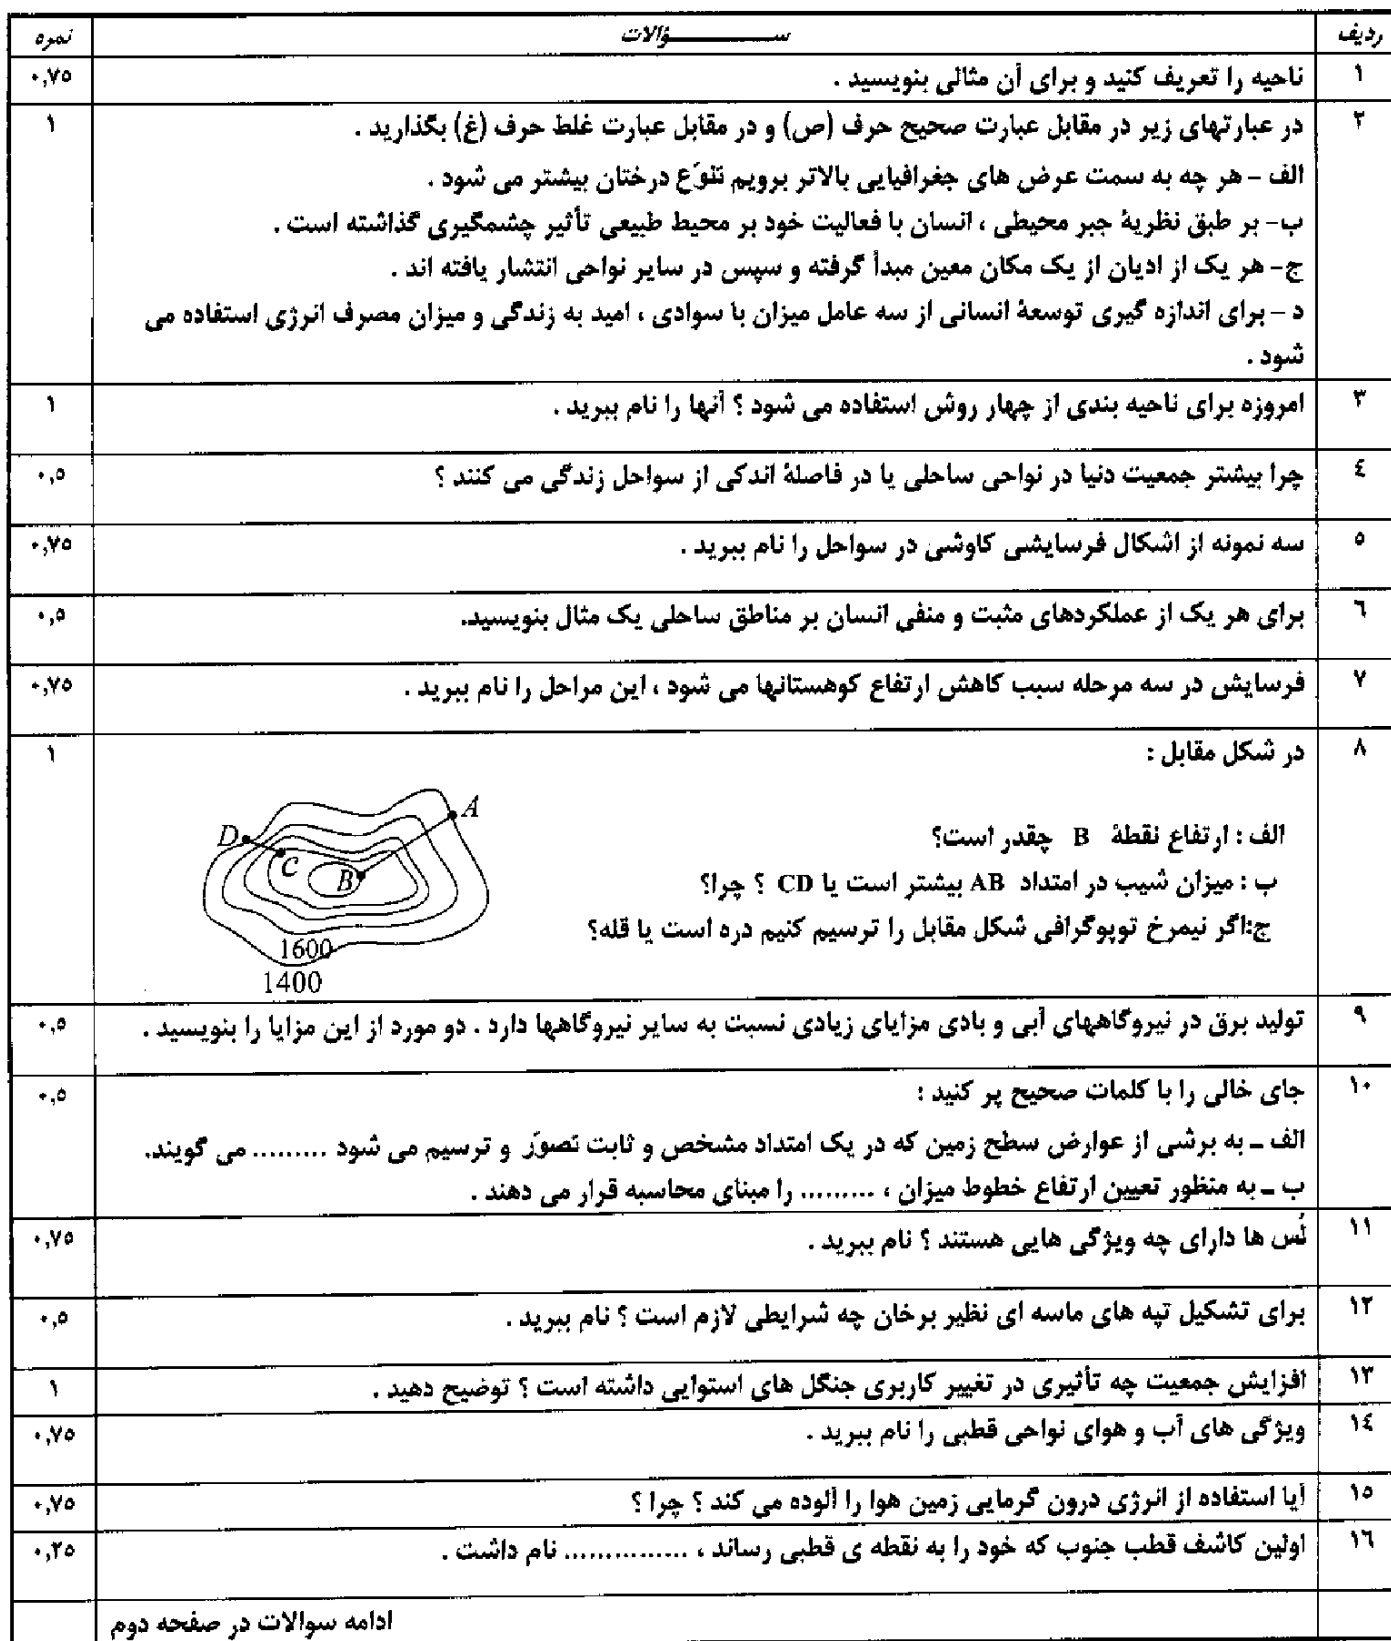 ردیف	ســـــــــؤالات	نمره
۱	ناحیه را تعریف کنید و برای آن مثالی بنویسید .	۰,۷۵
۲	در عبارتهای زیر در مقابل عبارت صحیح حرف (ص) و در مقابل عبارت غلط حرف (غ) بگذارید .	۱
الف - هر چه به سمت عرض های جغرافیایی بالاتر برویم تنوّع درختان بیشتر می شود .
ب- بر طبق نظریهٔ جبر محیطی ، انسان با فعالیت خود بر محیط طبیعی تأثیر چشمگیری گذاشته است .
ج- هر یک از ادیان از یک مکان معین مبدأ گرفته و سپس در سایر نواحی انتشار یافته اند .
د – برای اندازه گیری توسعهٔ انسانی از سه عامل میزان با سوادی ، امید به زندگی و میزان مصرف انرژی استفاده می
شود .
۳	امروزه برای ناحیه بندی از چهار روش استفاده می شود ؟ آنها را نام ببرید .	۱
٤	چرا بیشتر جمعیت دنیا در نواحی ساحلی یا در فاصلهٔ اندکی از سواحل زندگی می کنند ؟	۰,۵
۵	سه نمونه از اشکال فرسایشی کاوشی در سواحل را نام ببرید .	۰,۷۵
٦	برای هر یک از عملکردهای مثبت و منفی انسان بر مناطق ساحلی یک مثال بنویسید.	۰,۵
۷	فرسایش در سه مرحله سبب کاهش ارتفاع کوهستانها می شود ، این مراحل را نام ببرید .	۰,۷۵
۸	در شکل مقابل :	۱
الف : ارتفاع نقطهٔ B چقدر است؟
ب : میزان شیب در امتداد AB بیشتر است یا CD ؟ چرا؟
ج:اگر نیمرخ توپوگرافی شکل مقابل را ترسیم کنیم دره است یا قله؟
A
D
C
B
1600
1400
۹	تولید برق در نیروگاههای آبی و بادی مزایای زیادی نسبت به سایر نیروگاهها دارد . دو مورد از این مزایا را بنویسید .	۰,۵
۱۰	جای خالی را با کلمات صحیح پر کنید :	۰,۵
الف ـ به برشی از عوارض سطح زمین که در یک امتداد مشخص و ثابت تصوّر و ترسیم می شود ......... می گویند.
ب ـ به منظور تعیین ارتفاع خطوط میزان ، ......... را مبنای محاسبه قرار می دهند .
۱۱	لُس ها دارای چه ویژگی هایی هستند ؟ نام ببرید .	۰,۷۵
۱۲	برای تشکیل تپه های ماسه ای نظیر برخان چه شرایطی لازم است ؟ نام ببرید .	۰,۵
۱۳	افزایش جمعیت چه تأثیری در تغییر کاربری جنگل های استوایی داشته است ؟ توضیح دهید .	۱
۱٤	ویژگی های آب و هوای نواحی قطبی را نام ببرید .	۰,۷۵
۱۵	آیا استفاده از انرژی درون گرمایی زمین هوا را آلوده می کند ؟ چرا ؟	۰,۷۵
۱٦	اولین کاشف قطب جنوب که خود را به نقطه ی قطبی رساند ، ............... نام داشت .	۰,۲۵
ادامه سوالات در صفحه دوم